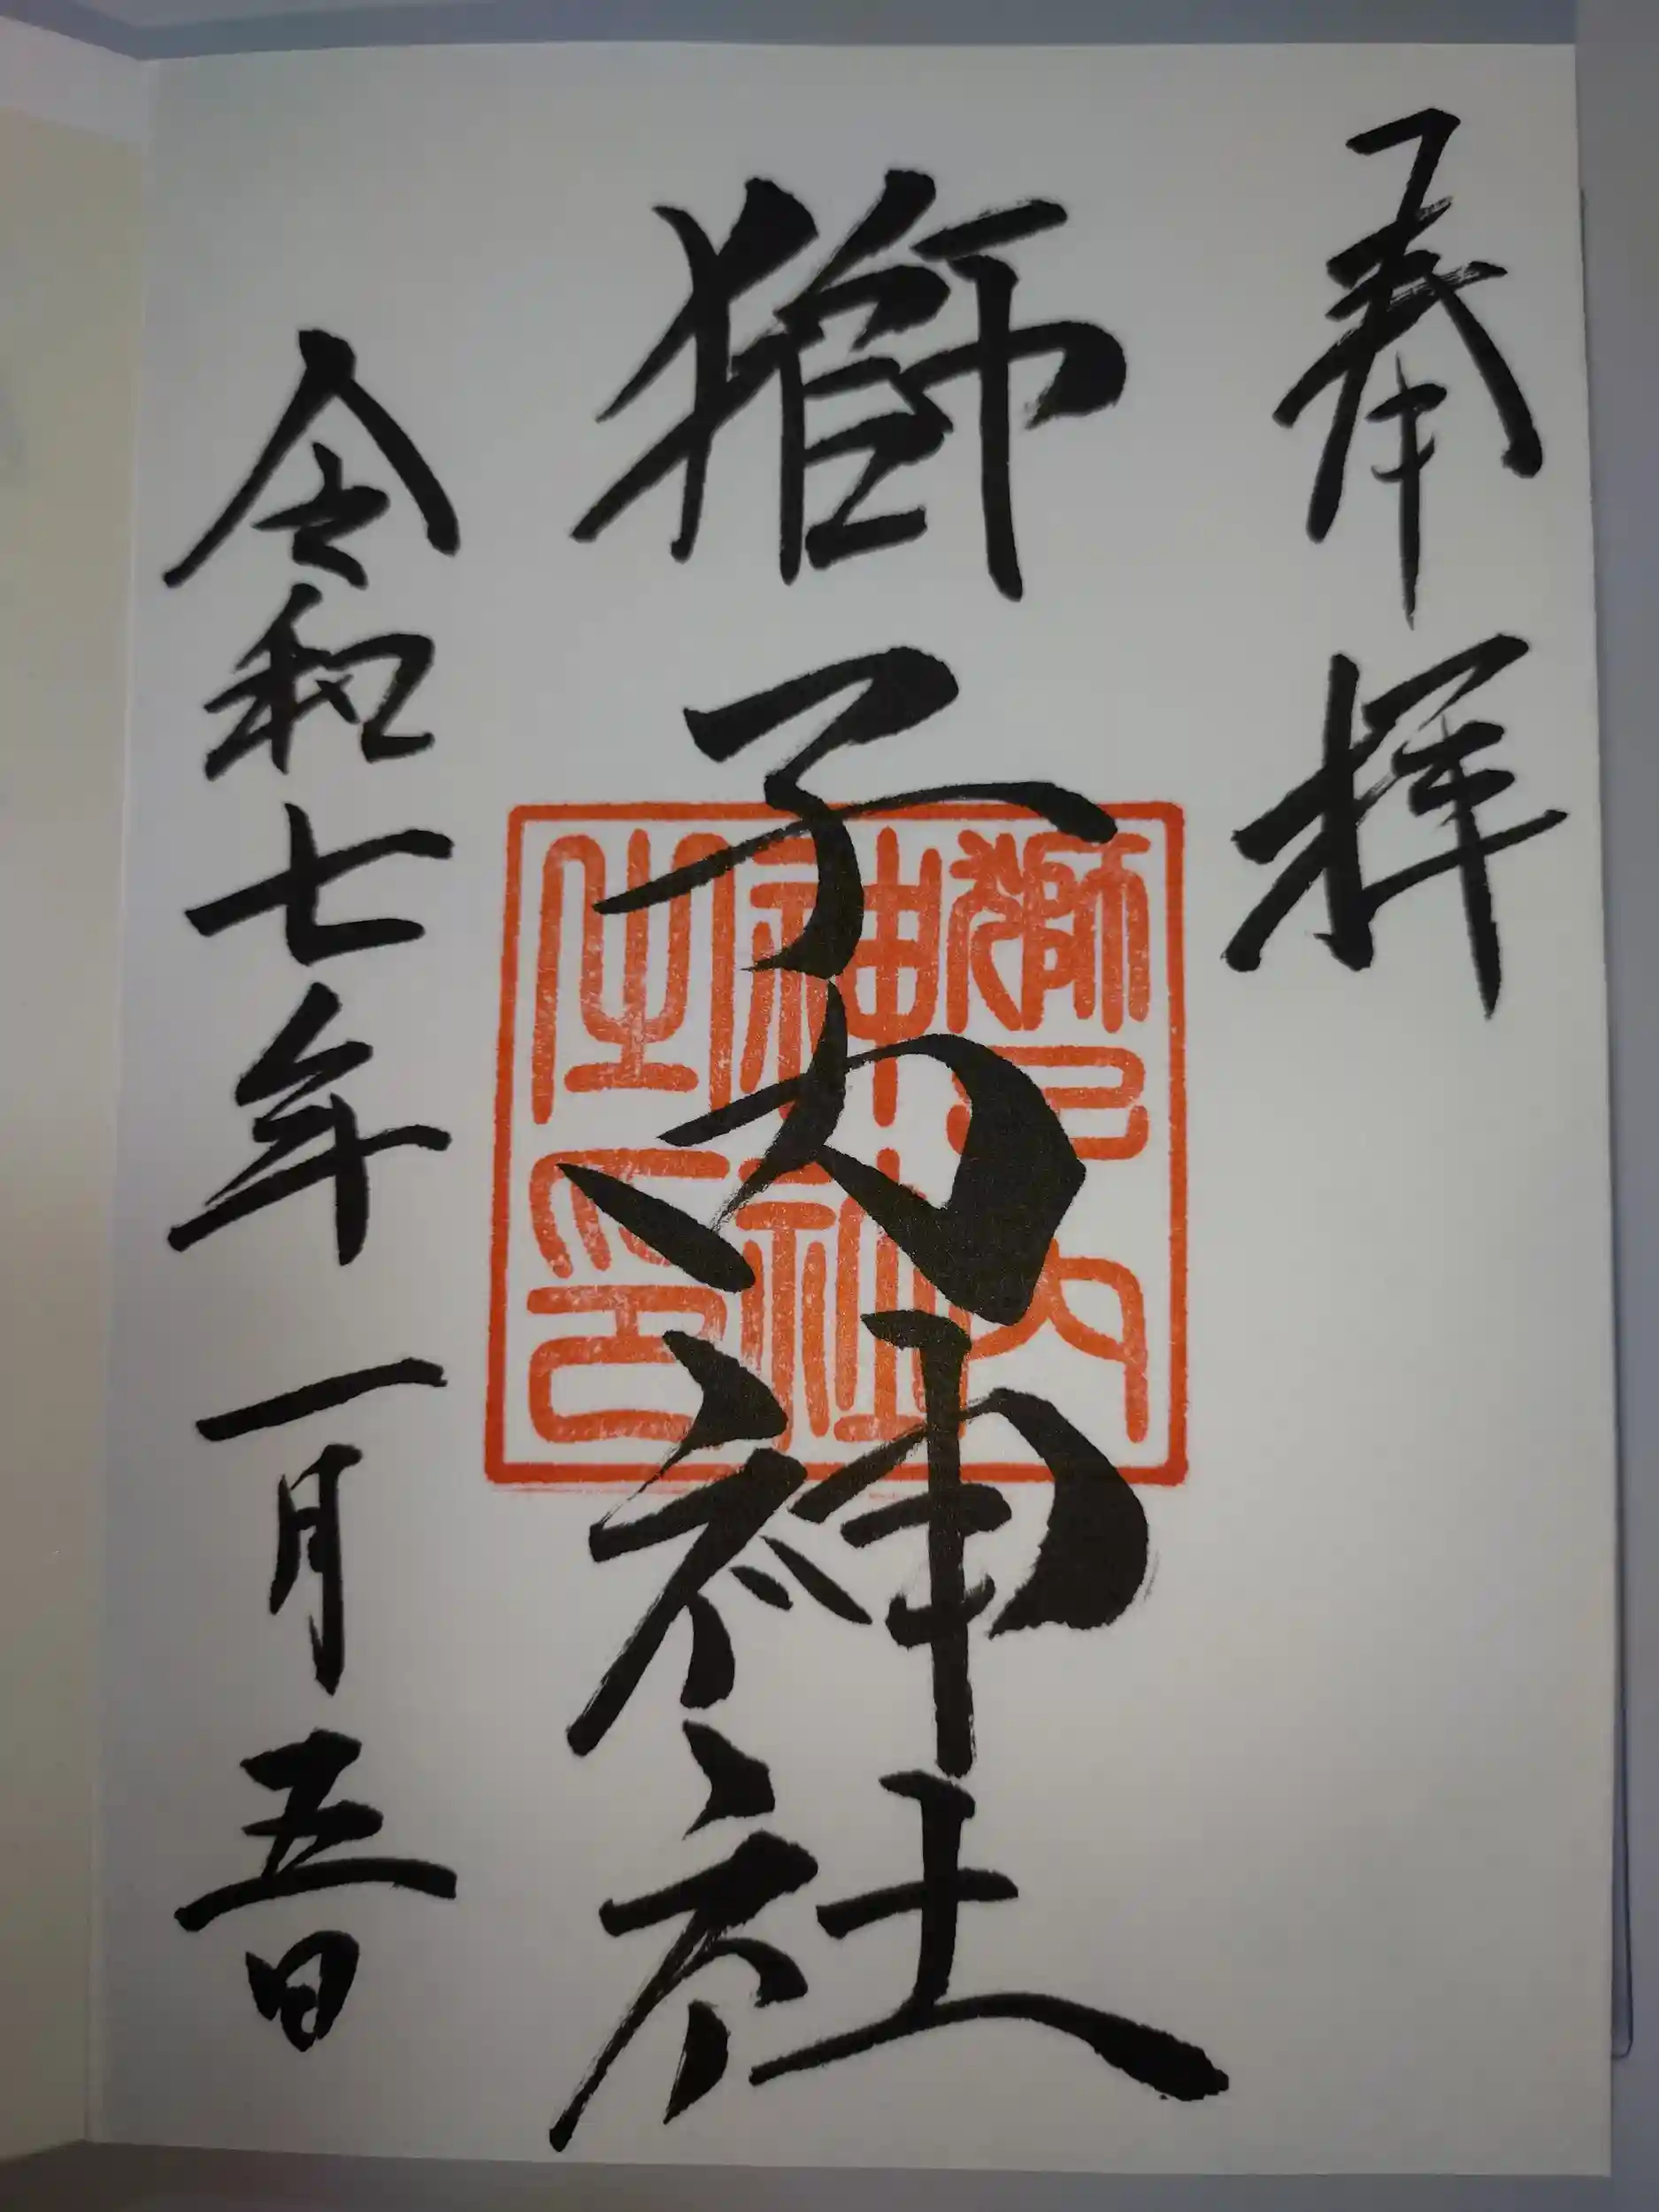 奉拝
獅子内神社
令和七年一月五日
獅子内
神社
之印